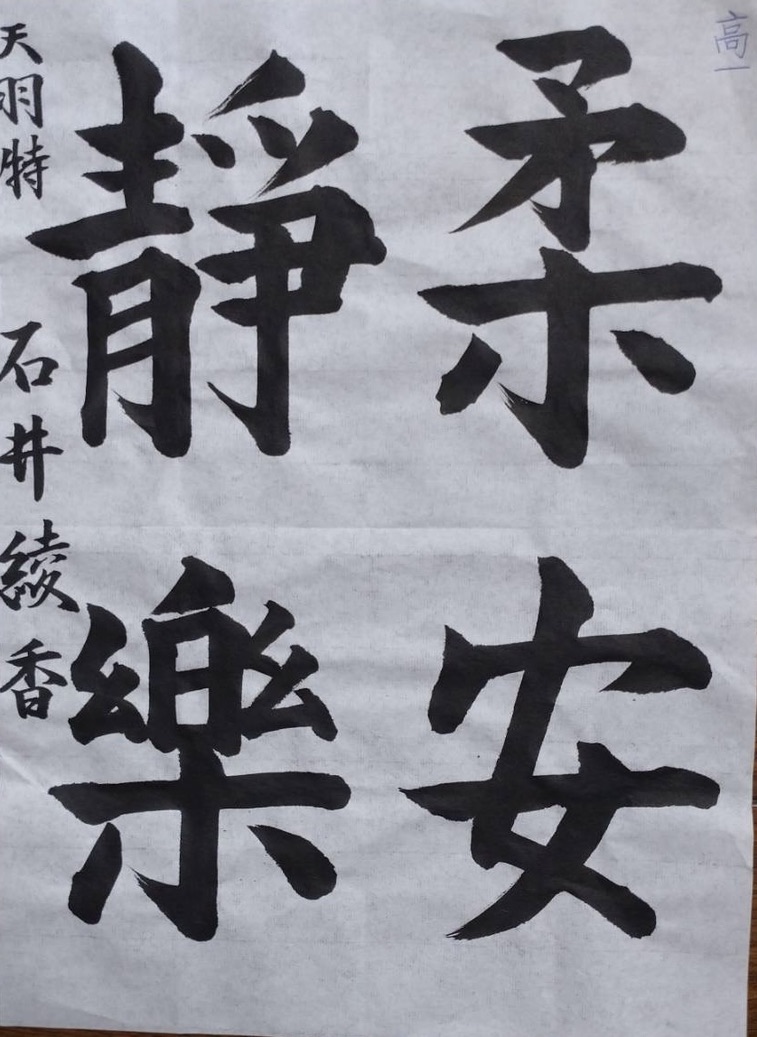 高一
柔安
靜樂
天羽特 石井綾香